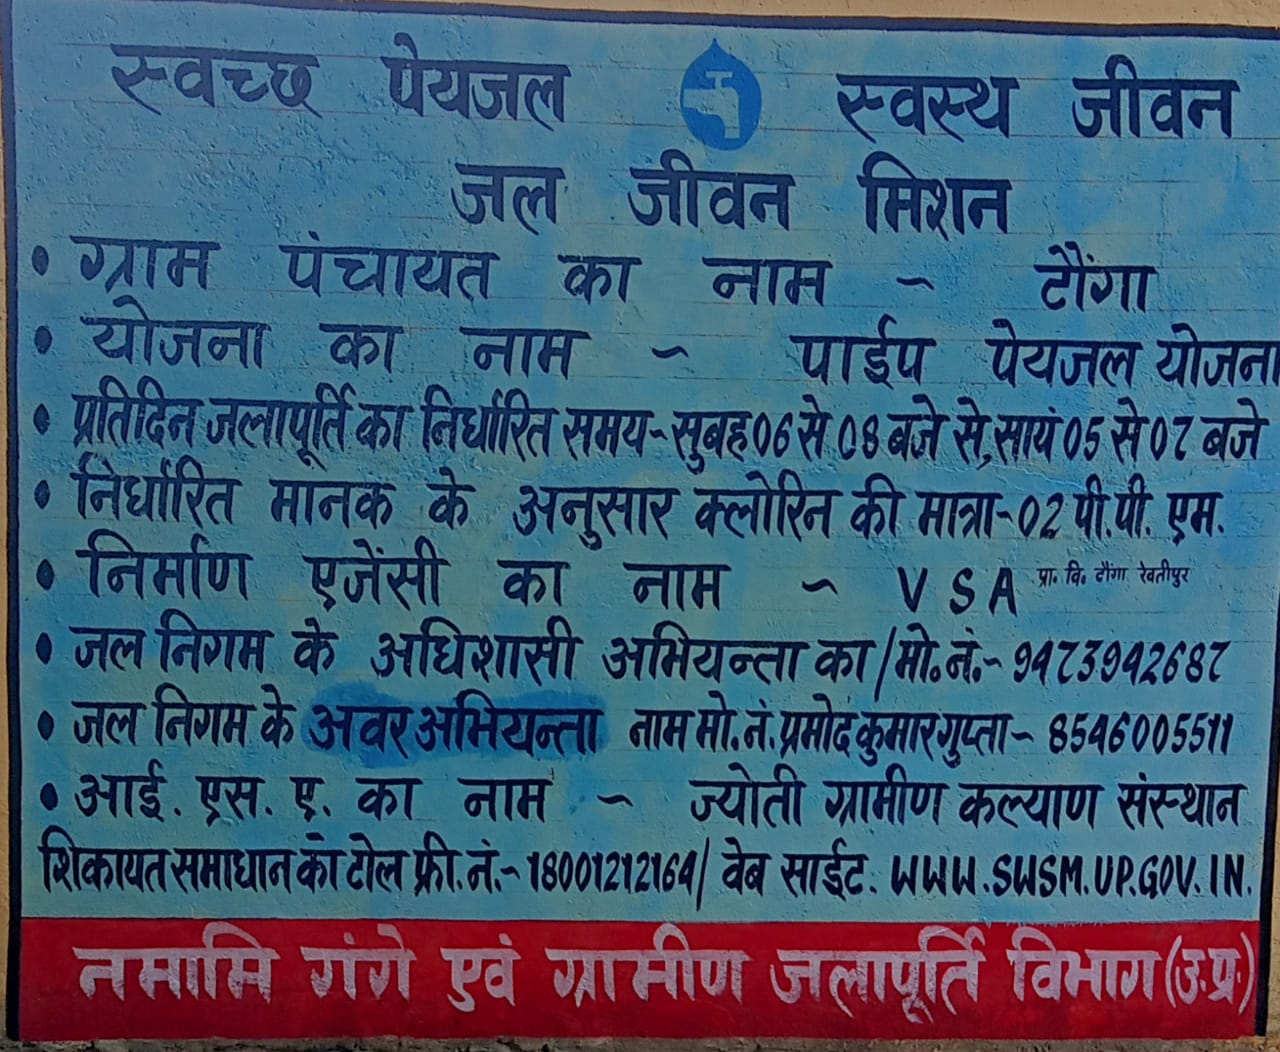 स्वच्छ पेयजल स्वस्थ जीवन
जल जीवन मिशन
• ग्राम पंचायत का नाम ~ टौंगा
• योजना का नाम ~ पाईप पेयजल योजना
• प्रतिदिन जलापूर्ति का निर्धारित समय~सुबह 06 से 08 बजे से, सायं 05 से 07 बजे
• निर्धारित मानक के अनुसार क्लोरिन की मात्रा~02 पी.पी. एम.
• निर्माण एजेंसी का नाम ~ V S A प्रा. वि. टौंगा रेवतीपुर
• जल निगम के अधिशासी अभियन्ता का/मो.नं.~ 9473942687
• जल निगम के अवर अभियन्ता नाम मो.नं. प्रमोद कुमार गुप्ता~ 8546005511
• आई. एस. ए. का नाम ~ ज्योती ग्रामीण कल्याण संस्थान
शिकायत समाधान को टोल फ्री.नं.~18001212164/ वेब साईट. WWW.SWSM.UP.GOV.IN.
नमामि गंगे एवं ग्रामीण जलापूर्ति विभाग (उ.प्र.)